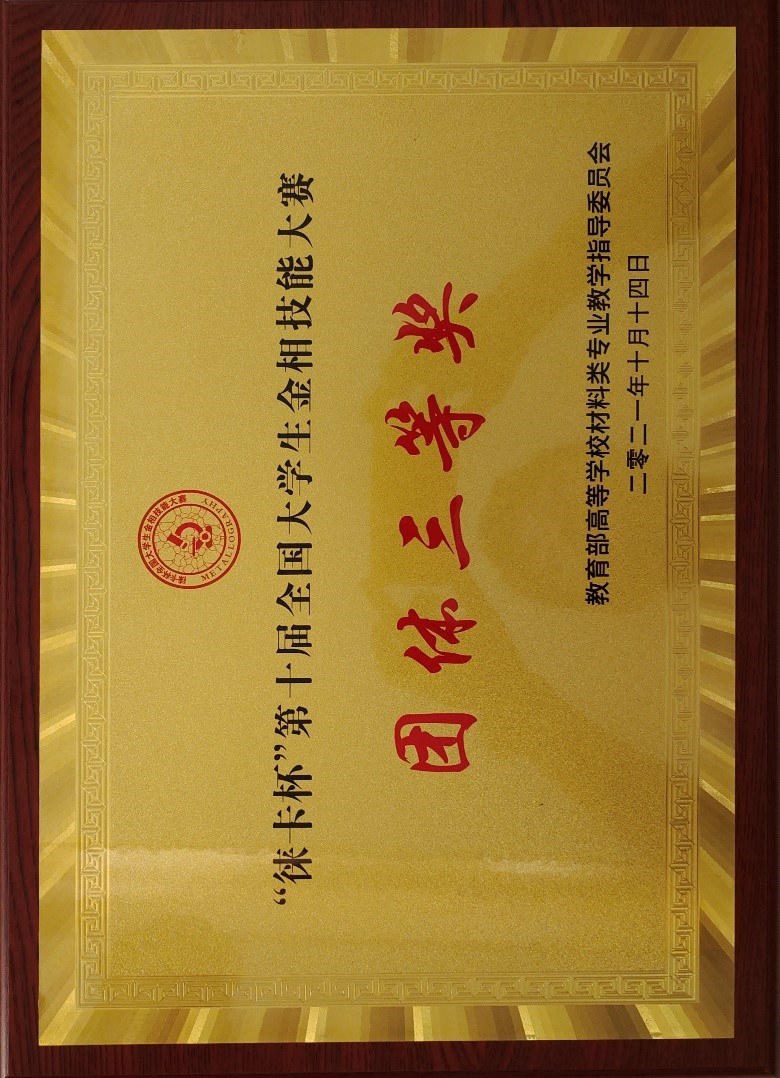 徕卡杯全国大学生金相技能大赛
METALLOGRAPHY
“徕卡杯”第十届全国大学生金相技能大赛
团体三等奖
教育部高等学校材料类专业教学指导委员会
二零二一年十月十四日